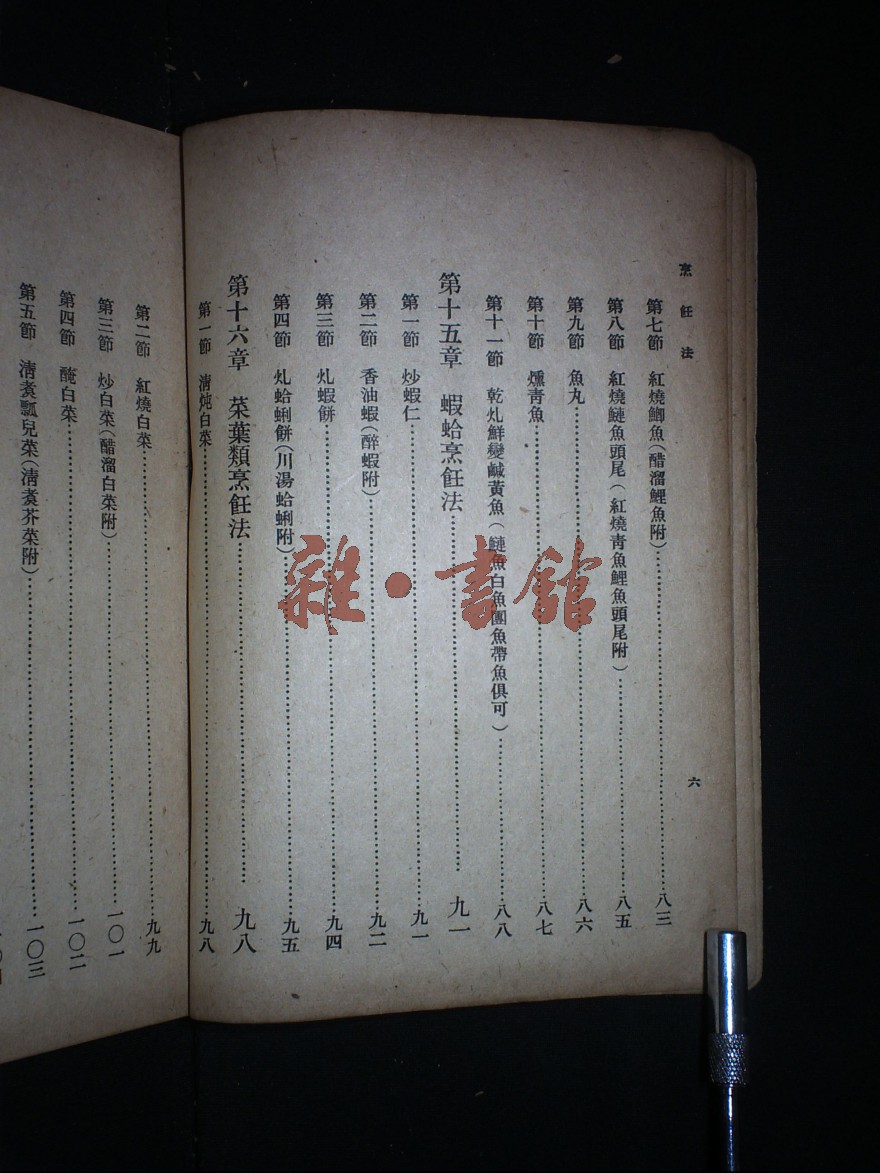 烹飪法
六
第七節 紅燒鯽魚(醋溜鯉魚附)……八三
第八節 紅燒鰱魚頭尾(紅燒青魚鯉魚頭尾附)……八五
第九節 魚丸……八六
第十節 燻青魚……八七
第十一節 乾煠鮮變鹹黃魚(鰱魚白魚團魚帶魚俱可)……八八
第十五章 蝦蛤烹飪法……九一
第一節 炒蝦仁……九一
第二節 香油蝦(醉蝦附)……九二
第三節 煠蝦餅……九四
第四節 煠蛤蜊餅(川湯蛤蜊附)……九五
第十六章 菜葉類烹飪法……九八
第一節 清炖白菜……九八
第二節 紅燒白菜……九九
第三節 炒白菜(醋溜白菜附)……一〇一
第四節 醃白菜……一〇二
第五節 清煑瓢兒菜(清煑芥菜附)……一〇三
雜·書館